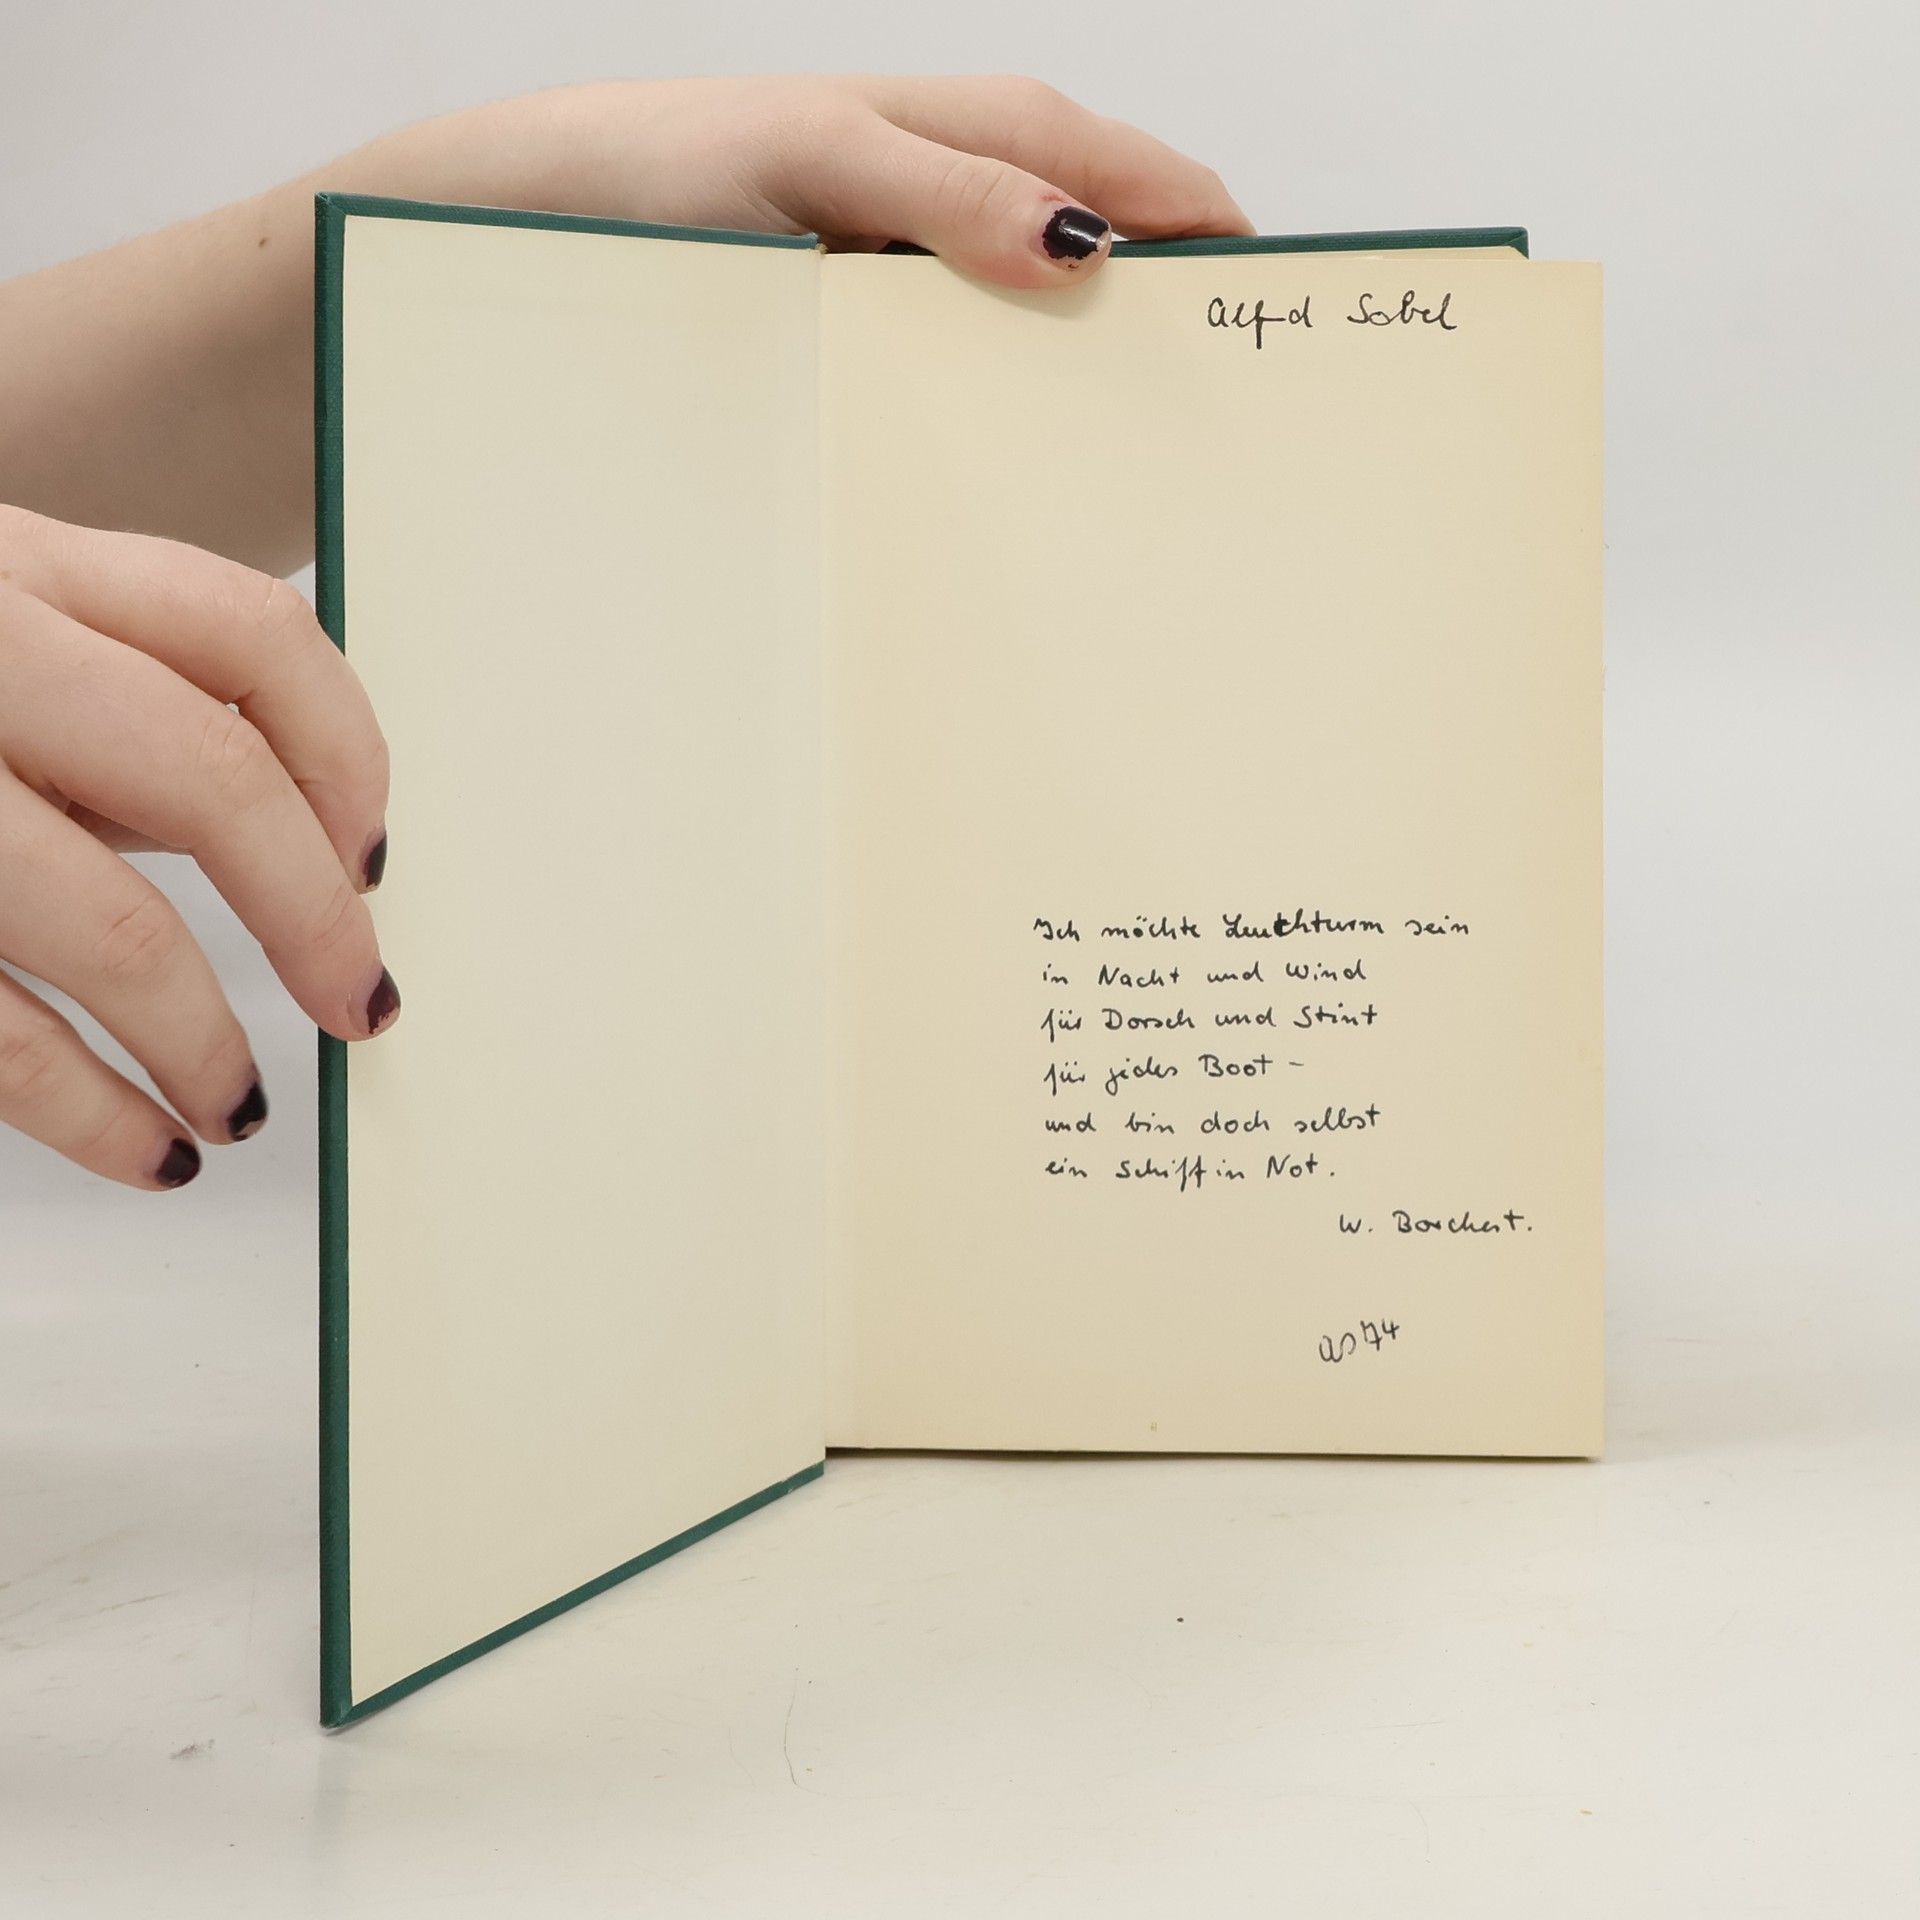 Alfred Sobel
Ich möchte Leuchtturm sein
in Nacht und Wind
für Dorsch und Stint
für jedes Boot –
und bin doch selbst
ein Schiff in Not.
W. Borchert.
AS 74